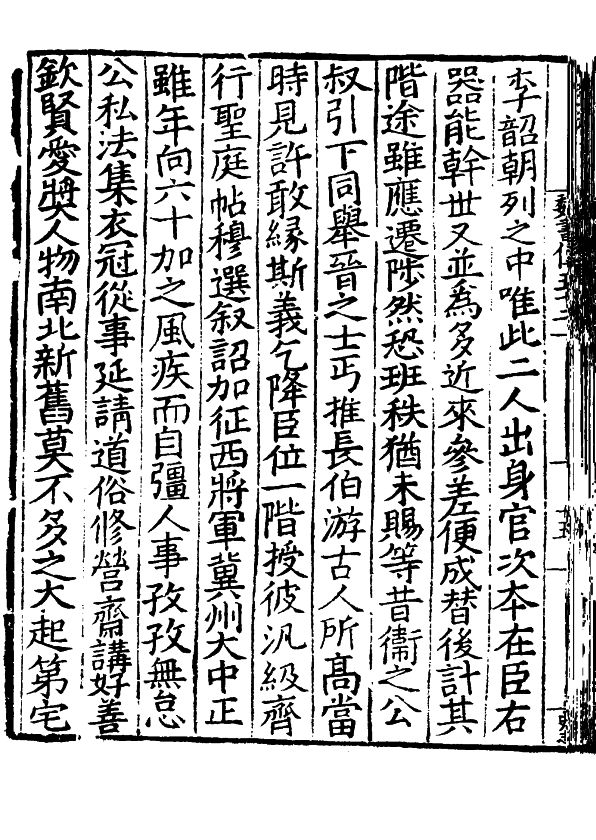 李韶朝列之中唯此二人出身官次本在臣右
器能幹世又並為多近來參差便成替後計其
階途雖應遷陟然恐班秩猶未賜等昔衞之公
叔引下同舉晉之士丐推長伯游古人所高當
時見許敢緣斯義乞降臣位一階授彼汎級齊
行聖庭帖穆選叙詔加征西將軍冀州大中正
雖年向六十加之風疾而自彊人事孜孜無怠
公私法集衣冠從事延請道俗修營齋講好善
欽賢愛奬人物南北新舊莫不多之大起第宅